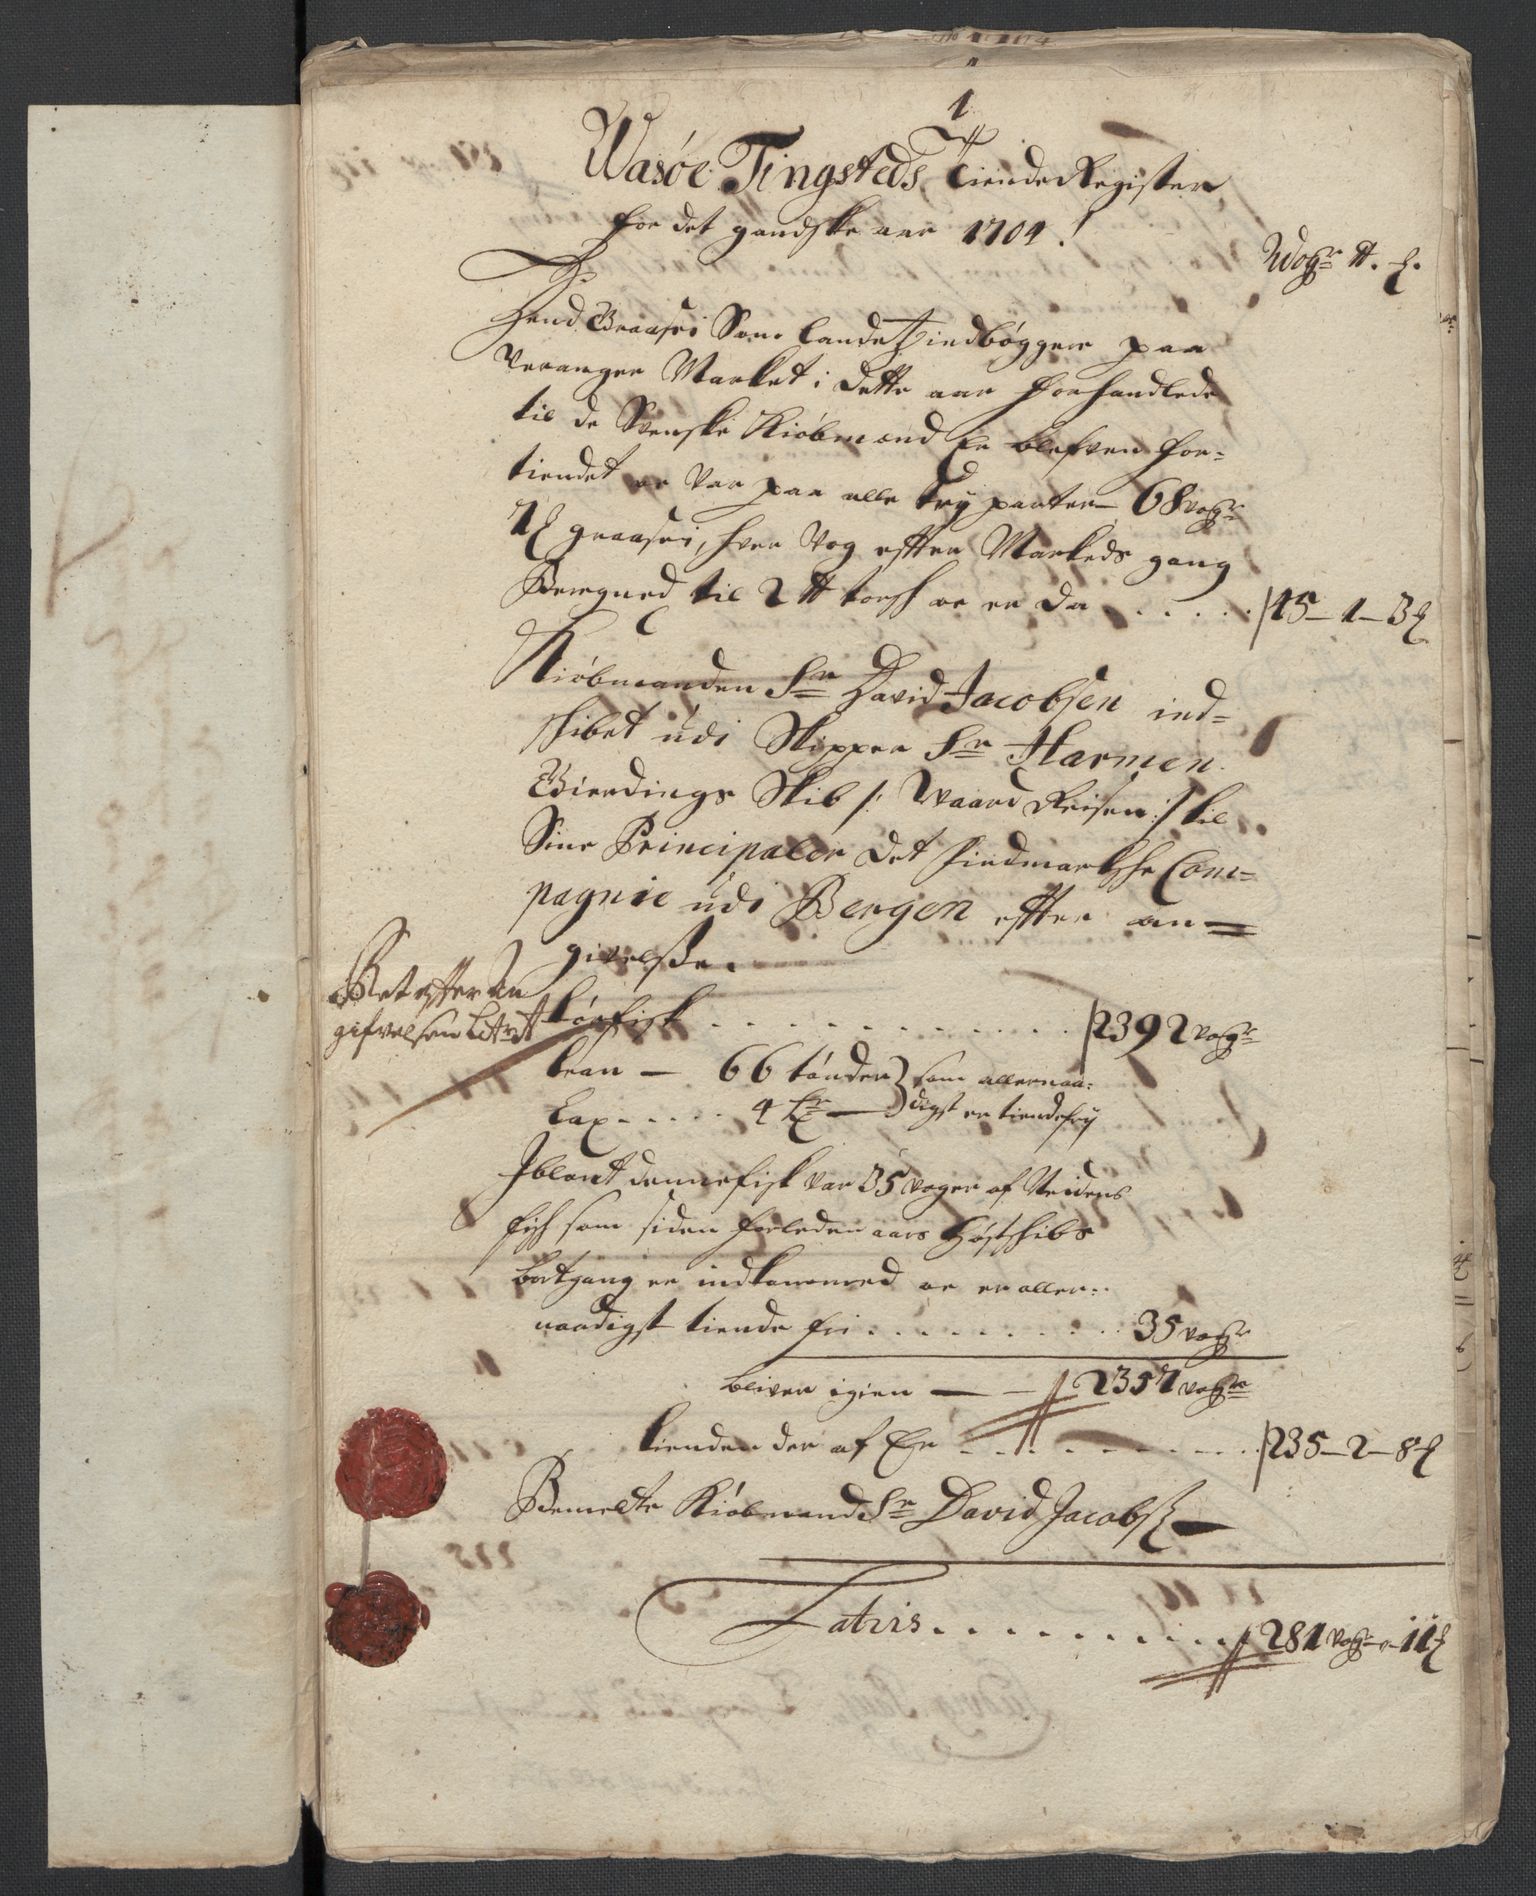 1
Wasöe Tingsteds Tiende Register
for det gandske aar 1704.
Wogr ℔. ℥.
Hend Graasei Som landetz indbøggere paa
Varanger Market i dette aar forhandlede
til de Svenske Kiøbmænd Er blefven for=
tiendet oc var paa alle try parter 68 wogr
1 ℥ graasei, hver Vog effter Markeds gang
Beregned til 2 ℔ torsk oc er da . . . . . 45 - 1 - 3 ℥
Kiøbmanden Sr David Jacobsen ind=
skibet udi Skipper Sr Harmen
Gierdings Skib /: Waard Reisen :/ til
Sine Principaler Det Findmarkske Com=
pagnie udi Bergen effter an=
givelsse.
Ret effter an
gifvelsen Litr A
Törfisk . . . . . . . . . . . . 2392 vogr
tran — 66 tönder } som allernaa=
Lax . . . . 4 tr — } digst er tiendefrij
Iblant denne fisk var 35 voger af Neidens
fisk som siden forleden aars høstskibs
bortgang er indkommed oc er aller=
naadigst tiende fri . . . . . . . . . . 35 vogr
bliver igien — — 2357 vogr
tienden der af Er . . . . . . . . . . 235 - 2 - 8 ℥
Bemelte Kiøbmand Sr David Jacobs
Latris . . . . . . . . . . 281 vogr - 11 ℥